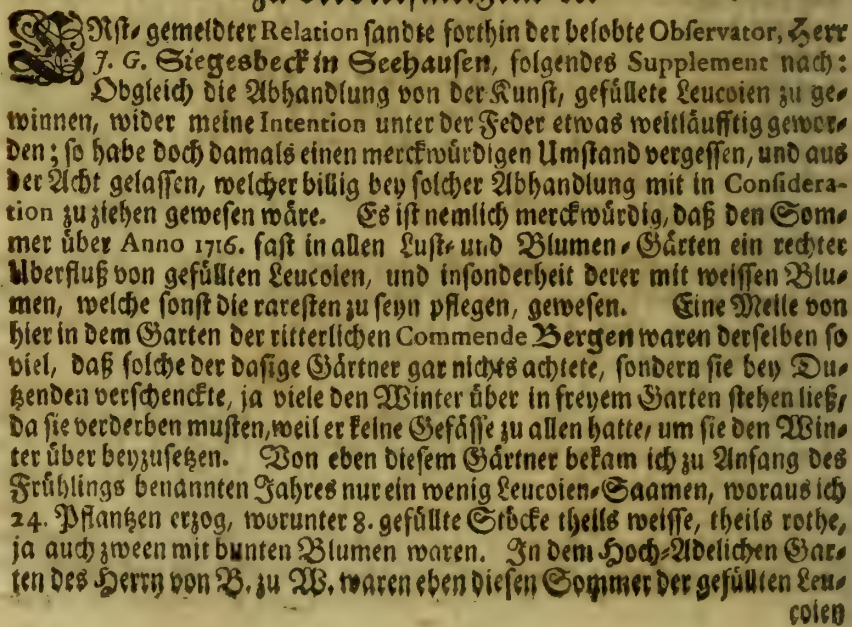 ERst-gemeldter Relation sandte forthin der belobte Observator, Herr
J. G. Siegesbeck in Seehausen, folgendes Supplement nach:
Obgleich die Abhandlung von der Kunst, gefüllete Leucoien zu ge-
winnen, wider meine Intention unter der Feder etwas weitläufftig gewor-
den; so habe doch damals einen merckwürdigen Umstand vergessen, und aus
der Acht gelassen, welcher billig bey solcher Abhandlung mit in Considera-
tion zu ziehen gewesen wäre. Es ist nemlich merckwürdig, daß den Som-
mer über Anno 1716. fast in allen Lust- und Blumen-Gärten ein rechter
Uberfluß von gefüllten Leucoien, und insonderheit derer mit weissen Blu-
men, welche sonst die raresten zu seyn pflegen, gewesen. Eine Meile von
hier in dem Garten der ritterlichen Commende Bergen waren derselben so
viel, daß solche der dasige Gärtner gar nichts achtete, sondern sie bey Du-
tzenden verschenckte, ja viele den Winter über in freyem Garten stehen ließ,
da sie verderben musten, weil er keine Gefässe zu allen hatte, um sie den Win-
ter über beyzusetzen. Von eben diesem Gärtner bekam ich zu Anfang des
Frühlings benannten Jahres nur ein wenig Leucoien-Saamen, woraus ich
24. Pflantzen erzog, worunter 8. gefüllte Stöcke theils weisse, theils rothe,
ja auch zween mit bunten Blumen waren. In dem Hoch-Adelichen Gar-
ten des Herrn von B. zu W. waren eben diesen Sommer der gefüllten Leu-
coien